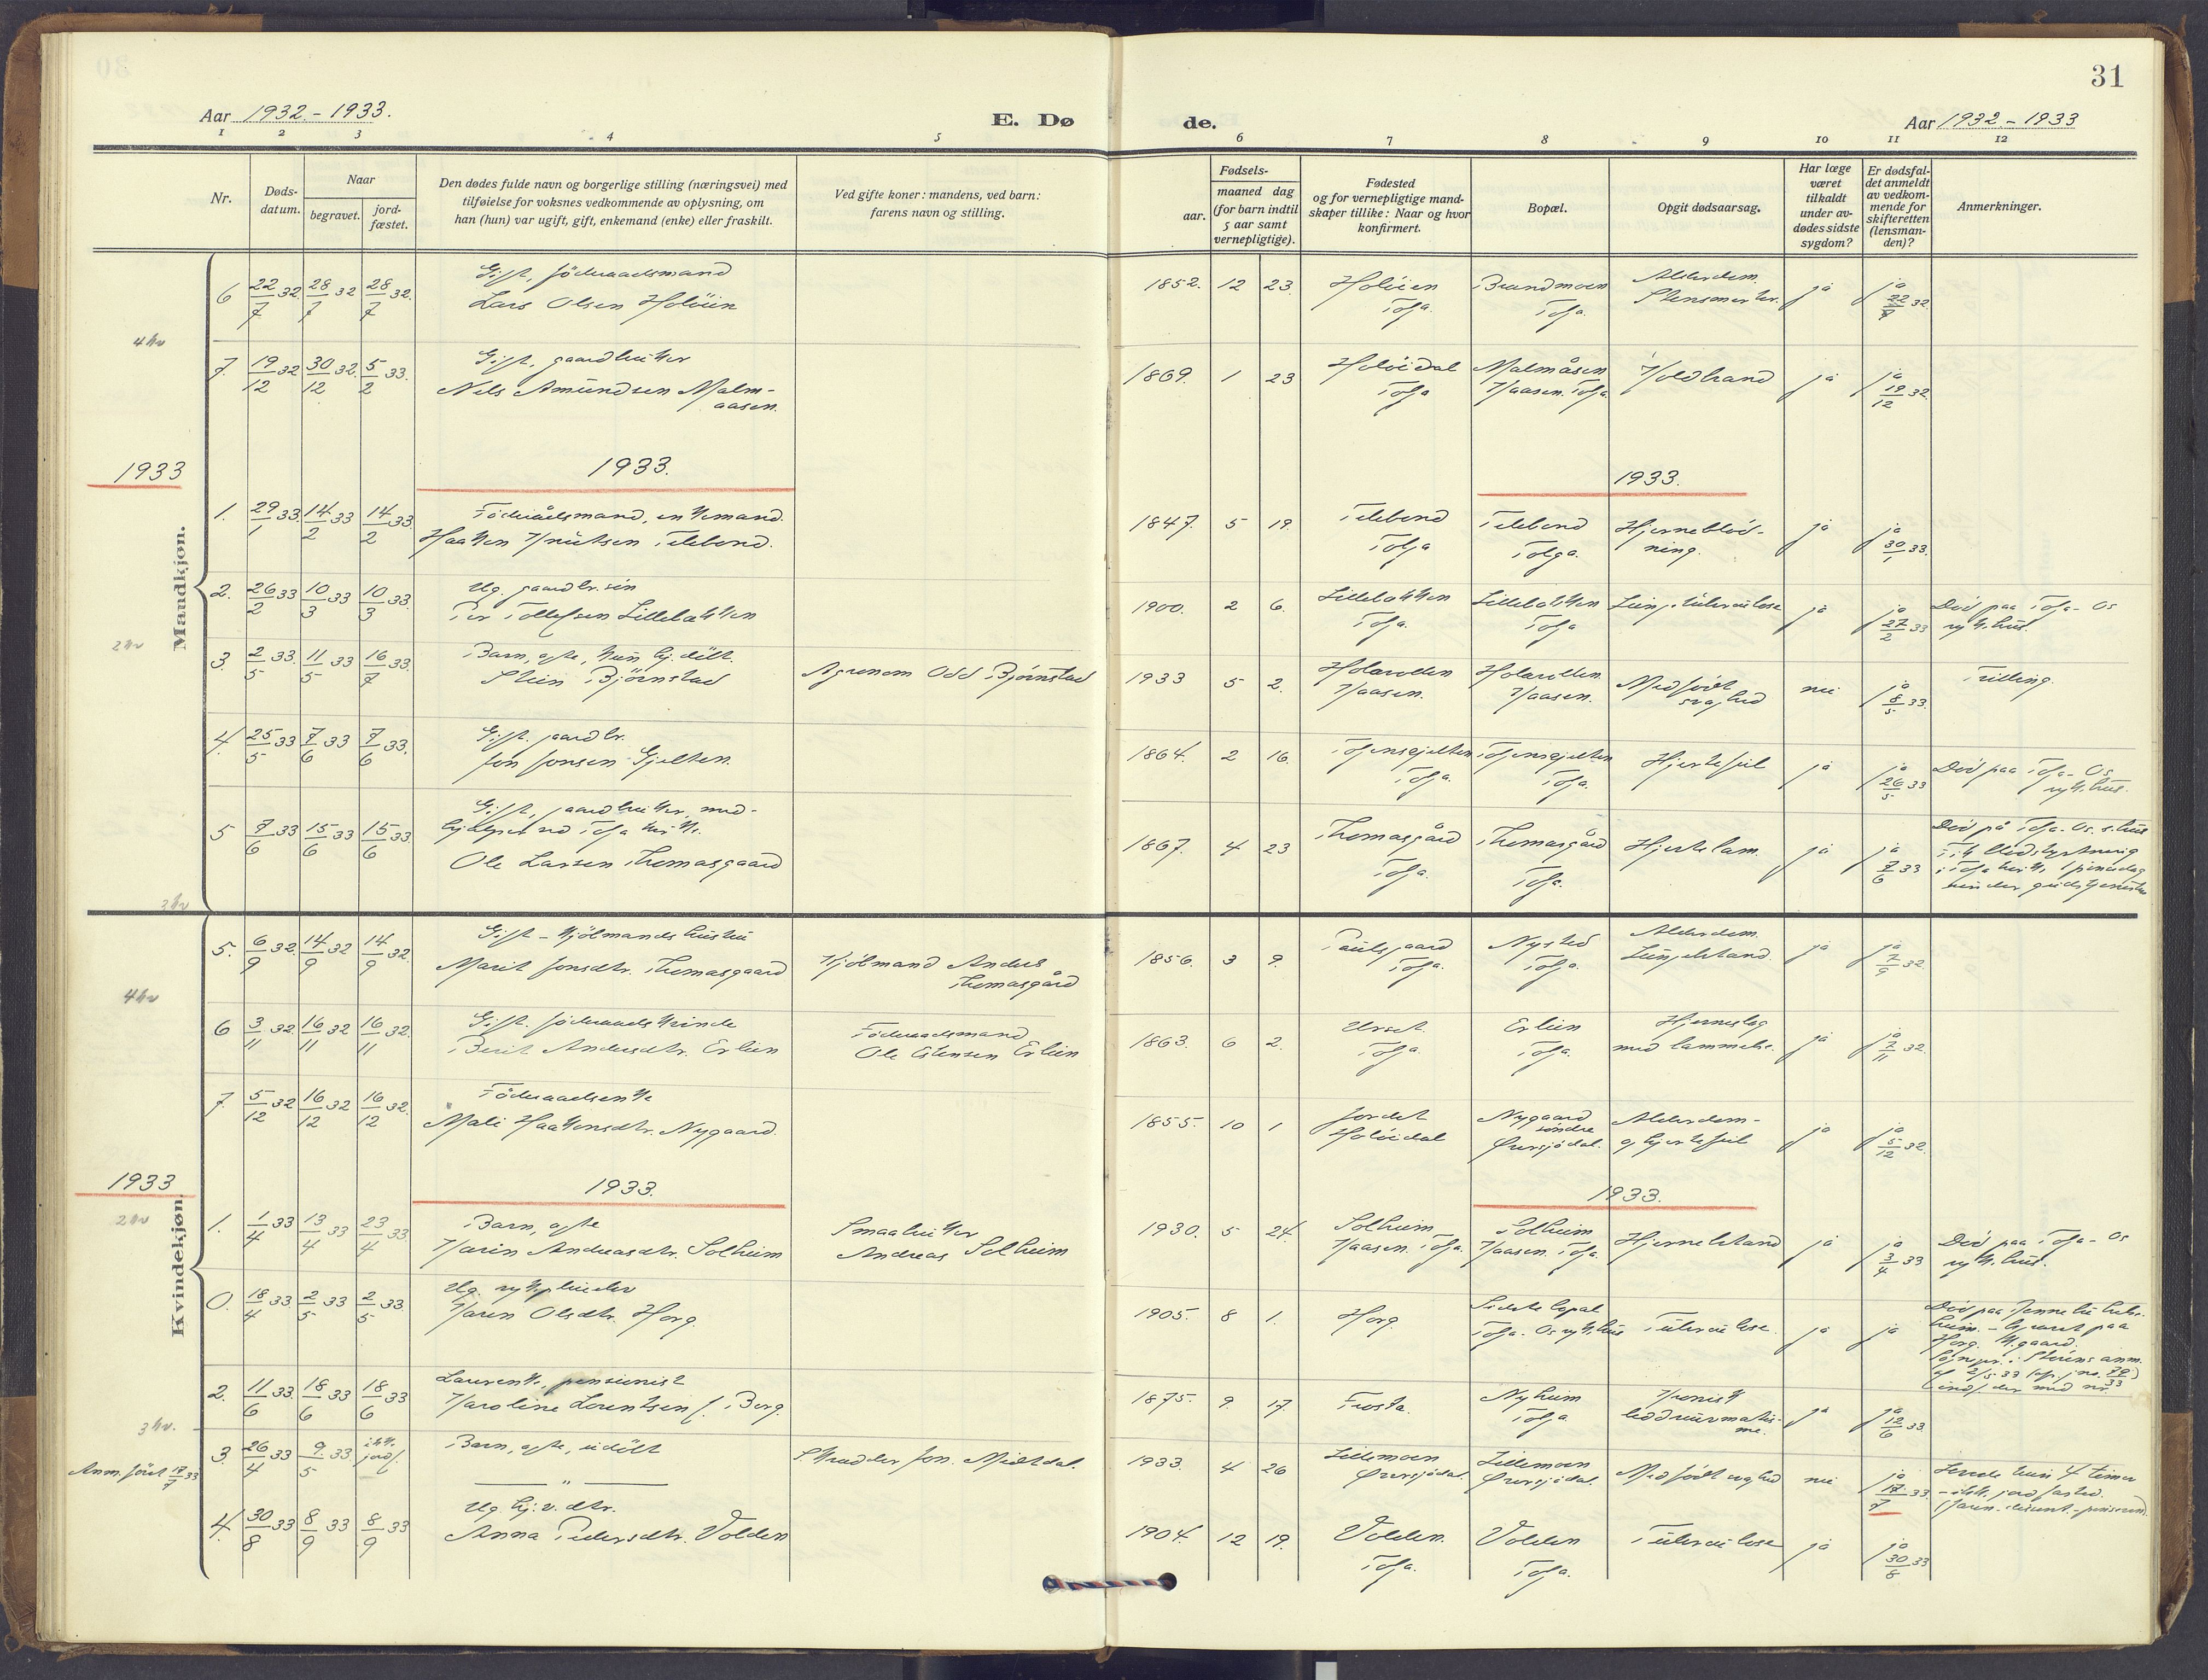 31
Aar 1932.-1933.
E. Dø
de.
Aar 1932.-1933
1 2 3 4 5 6 7 8 9 10 11 12
Nr.
Døds-
datum.
Naar
begravet.
jord-
fæstet.
Den dødes fulde navn og borgerlige stilling (næringsvei) med
tilføielse for voksnes vedkommende av oplysning, om
han (hun) var ugift, gift, enkemand (enke) eller fraskilt.
Ved gifte koner: mandens, ved barn:
farens navn og stilling.
Fødsels-
aar.
maaned dag
(for barn indtil
5 aar samt
vernepligtige).
Fødested
og for vernepligtige mand-
skaper tillike: Naar og hvor
konfirmert.
Bopæl.
Opgit dødsaarsag.
Har læge
været
tilkaldt
under av-
dødes sidste
sygdom?
Er dødsfal-
det anmeldt
av vedkom-
mende for
skifteretten
(lensman-
den)?
Anmerkninger.
Mandkjøn.
6 22/7 32 28/7 32 28/7 32. Gift, föderaadsmand
Lars Olsen Holöien
1852. 12 23 Holöien
Tolga. Brandmoen
Tolga. Alderdom.
ja ja 22/7 32.
7. 19/12 32 30/12 32. 5/2 33. Gift, gaardbruker
Nils Amundsen Malm-
aasen.
1869. 1 23 Holöidal
Tolga Malmåsen
Haasen. Tolga Koldbrand ja ja 19/12 32.
1933
1933.
1933.
1. 29/1 33. 14/2 33 14/2 33 Föderådsmand, enkemand.
Haaken Knutsen Telebond.
1847. 5 19 Telebond
Tolga Telebond
Tolga. Hjerneblöd-
ning. ja ja 30/1 33.
2. 26/2 33 10/3 33 10/3 33. Ug. gaardbr.sön
Per Tollefsen Lillebakken
1900. 2 6. Lillebakken
Tolga. Lillebakken
Tolga Lungetuberculose ja ja 27/2 33 Död paa Tolga-Os
sykehus.
3. 2/5 33. 11/5 33 16/7 33. Barn, egte, kun hj. döbt.
Stein Björnstad
Agronom Odd Björnstad
1933 5 2. Holavollen
Haasen. Holavollen
Haasen. Medfödt
svaghed nei ja 8/5 33. Trilling.
4. 25/5 33 7/6 33 7/6 33. Gift. gaardbr.
Jon Jonsen Gjelten.
1864. 2 16. Tolgensgjelten
Tolga. Tolgensgjelten
Tolga. Hjertefeil ja ja 26/5 33 Död paa Tolga-Os
sykehus.
5 7/6 33 15/6 33 15/6 33 Gift, gaardbruker, med-
hjelper ved Tolga kirke.
Ole Larsen Thomasgaard
1867. 4 23 Thomasgård
Tolga. Thomasgård
Tolga. Hjertelam. ja ja 7/6 33 Död på Tolga-Os. s.hus
i Tolga kirke 1 pinsedag
under gudstjenesten
Kvindekjøn.
5. 6/9 32 14/9 32 14/9 32. Gift - kjölmands hustru
Marit Jonsdtr. Thomasgaard
Kjölmand Anders
Thomasgård
1856. 3 9. Paulsgaard
Tolga. Nysted
Tolga. Alderdom.
Lungebetand. ja ja 7/9 32.
6 3/11 32. 16/11 32 16/11 32. Gift. föderaadskvinde
Berit Andersdtr. Erlien
Föderaadsmand
Ole Estensen Erlien
1863. 6 2. Urset.
Tolga. Erlien
Tolga. Hjerneslag
med lammelse. ja ja 7/11 32.
7. 5/12 32 16/12 32 16/12 32. Föderaadsenke
Mali Haakensdtr. Nygaard.
1855. 10 1 Jordet
Holöidal Nygaard
söndre
Øversjödal. Alderdom-
og hjertefeil ja ja 5/12 32.
1933
1933.
1933.
1. 1/4 33 13/4 33 23/4 33 Barn, egte
Karin Andreasdtr. Solheim
Smaabruker
Andreas Solheim
1930. 5 24. Solheim
Haasen. Tolga. Solheim
Haasen. Tolga. Hjernebetand ja ja 3/4 33 Död paa Tolga-Os
sykehus.
0. 18/4 33. 2/5 33 2/5 33. Ug. sykepleierske
Karen Olsdtr. Horg.
1905. 8 1. Horg. Sidste bopæl
Tolga-Os sykehus Tuberculose ja ja
2. 11/6 33. 18/6 33 18/6 33 pensionist
Karoline Lorentsen f. Berg.
1875. 9. 17. Frosta. Nyheim
Tolga Kronisk
leddrevmatis-
me. ja ja 12/6 33
Anm. först 17/7 33
3. 26/4 33 9/5 33. ikke
jordf. Barn, egte, udöbt
— " —
Skrædder Jon. Midtdal.
1933. 4 26 Lillemoen
Øversjödal. Lillemoen
Øversjödal. Medfödt svaghed nei ja 17/7 33. Levede kun 4 timer
- ikke jordfæsted.
4. 30/8 33 8/9 33 8/9 33 Ug hj.v. dtr.
Anna Pedersdtr. Volden
1904. 12 19. Volden.
Tolga. Volden
Tolga. Tuberculose ja ja 30/8 33